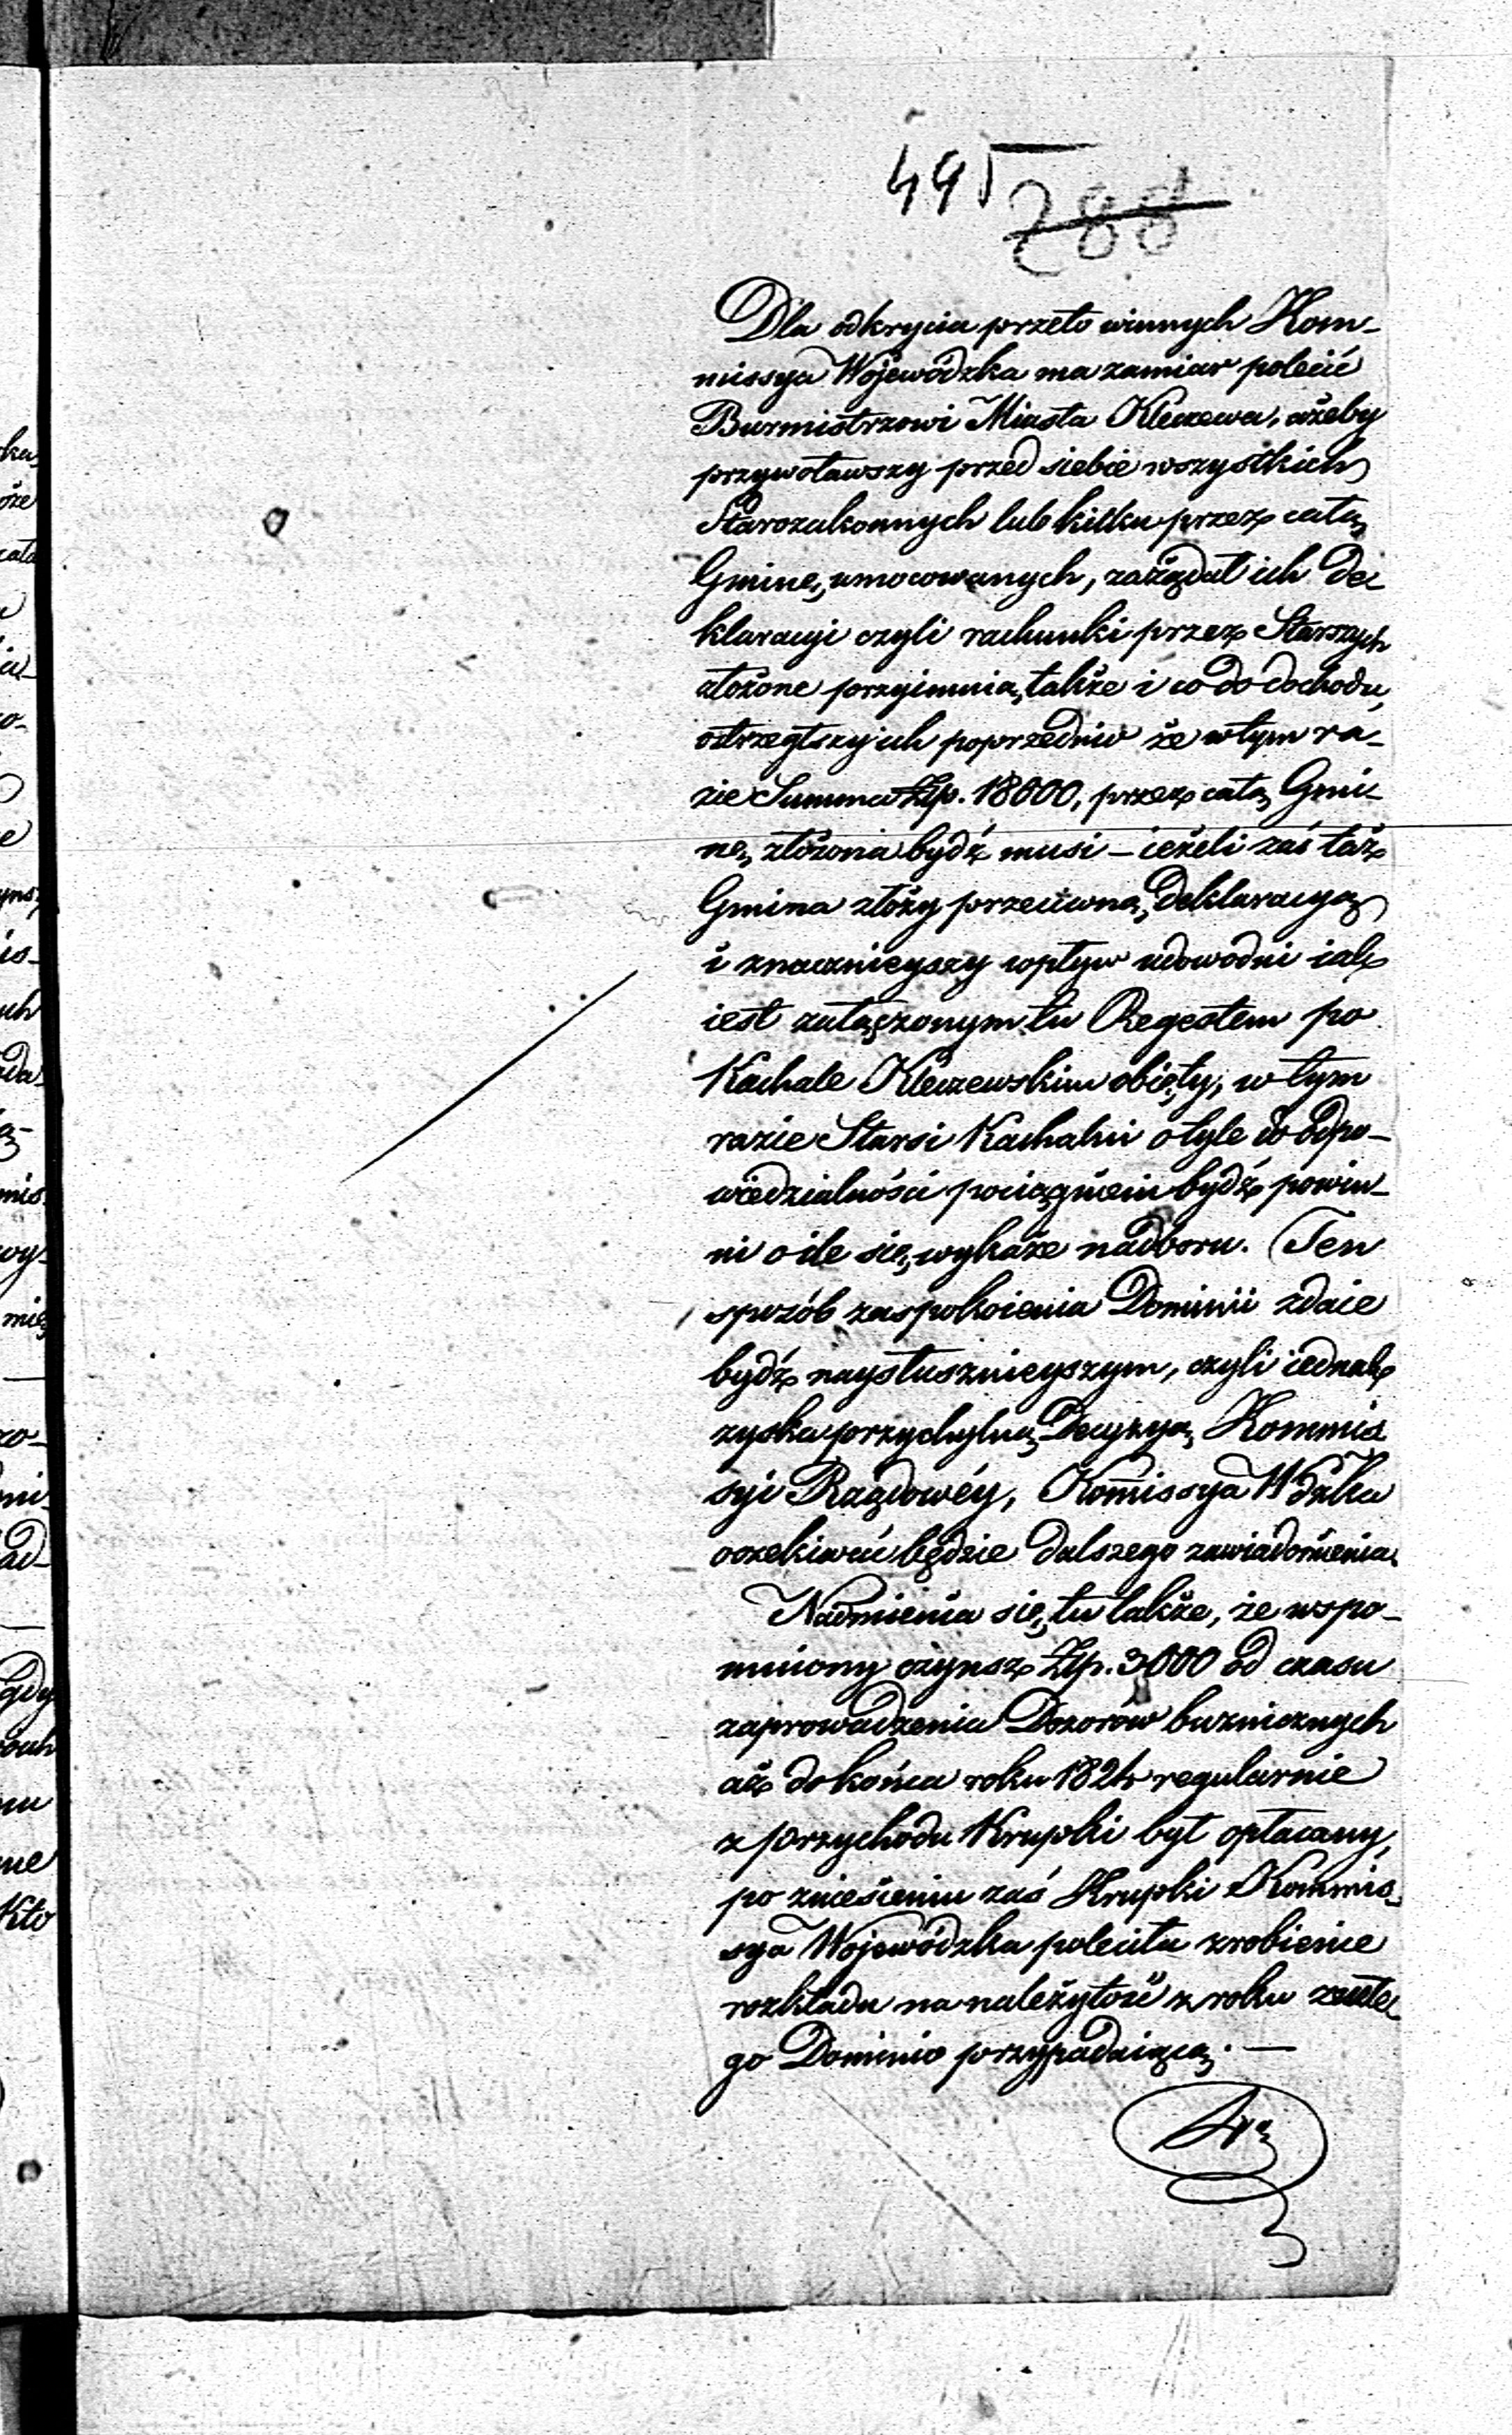 495
288
Dla odkrycia przeto winnych Kom-
missya Wojewódzka ma zamiar polecić
Burmistrzowi Miasta Kleczewa, ażeby
przywoławszy przed siebie wszystkich
Starozakonnych lub kilku przez całą
Gminę umocowanych, zażądał ich de-
klaracyi czyli rachunki przez Starszych
złożone przyimuią, także i co do dochodu,
ostrzegłszy ich poprzednio że w tym ra-
zie Summa Złp. 18000, przez całą Gmi-
nę, złożona bydź musi – ieżeli zaś taż
Gmina złoży przeciwną Deklaracyą
i znacznieyszy wpływ udowodni iak
iest załączonym tu Regestem po
Kachale Kleczewskim obięty, w tym
razie Starsi Kachalni o tyle do odpo-
wiedzialności pociągnieni bydź powin-
ni o ile się wykaże nadboru. Ten
sposób zaspokoienia Dominii zdaie
bydź naysłusznieyszym, czyli iednak
zyska przychylną Decyzyą Kommis-
syi Rządowéy, Kom̄issya Wdzka
oczekiwać będzie dalszego zawiadomienia.
Nadmienia się tu także, że wspo-
mniony czynsz Złp. 3000 od czasu
zaprowadzenia Dozorów bużnicznych
aż do końca roku 1824 regularnie
z przychodu Krupki był opłacany,
po zniesieniu zaś Krupki Kommis-
sya Wojewódzka poleciła zrobienie
rozkładu na należytość z roku zeszłe-
go Dominio przypadaiącą. —